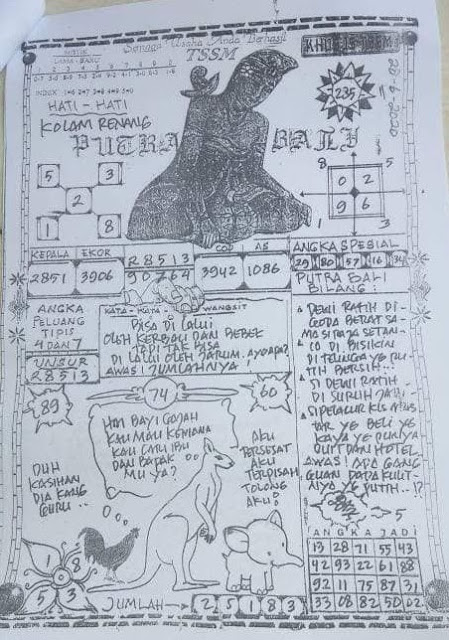 Semoga Usaha Anda Berhasil
TSSM
LAMA - BARU
INDEX
HATI - HATI
KOLAM RENANG
PUTRA BALI
235
28-6-2020
5 3
2
1 8
8 5
0 2
9 6
1 3
KEPALA EKOR
2851 3906
R 8 5 1 3
9 0 7 6 4
COP AS
3942 1086
ANGKA SPESIAL
29 80 57 16 34
PUTRA BALI
BILANG :
ANGKA
PELUANG
TIPIS
4 DAN 7
UNSUR
R 8 5 1 3
KATA - KATA WANGSIT
BISA DI LALUI
OLEH KERBAU DAN BEBEK
TAPI TAK BISA
DI LALUI OLEH JARUM, AYO APA?
AWAS! JUMLAHNYA,
DEWI RATIH DI
GODA BERAT SA-
MA SI RAJA SETAN..
DI BISIKIN
DI TELINGA YG PU-
TIH BERSIH...
SI DEWI RATIH
DI SURUH JADI
YG BELI YG
KAYA YG PUNYA
DUIT DAN HOTEL
AWAS! ADA GANG
GUAN PADA KULIT-
NYA YG PUTIH..!?
89
74
60
HAI BAYI GAJAH
KAU MAU KEMANA
KAU CARI IBU
DAN BAPAK
MU YA?
AKU
TERSESAT
AKU
TERPISAH
TOLONG
AKU!
DUH
KASIHAN
DIA KANG
GURU...
5
1 8
5 3
JUMLAH → 2 5 1 8 3
ANGKA JADI
13 28 71 55 43
42 93 22 61 88
92 11 75 87 31
33 08 82 50 62